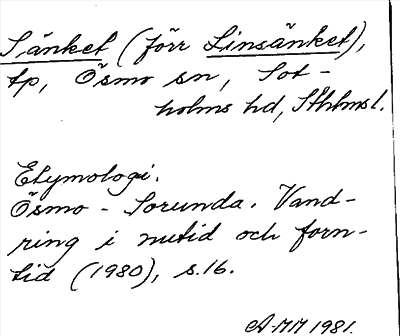 Sänket (förr Linsänket),
tp, Ösmo sn, Sot-
holms hd, Sthlms l.
Etymologi.
Ösmo - Sorunda. Vand-
ring i nutid och forn-
tid (1980), s.16.
A-MM 1981.